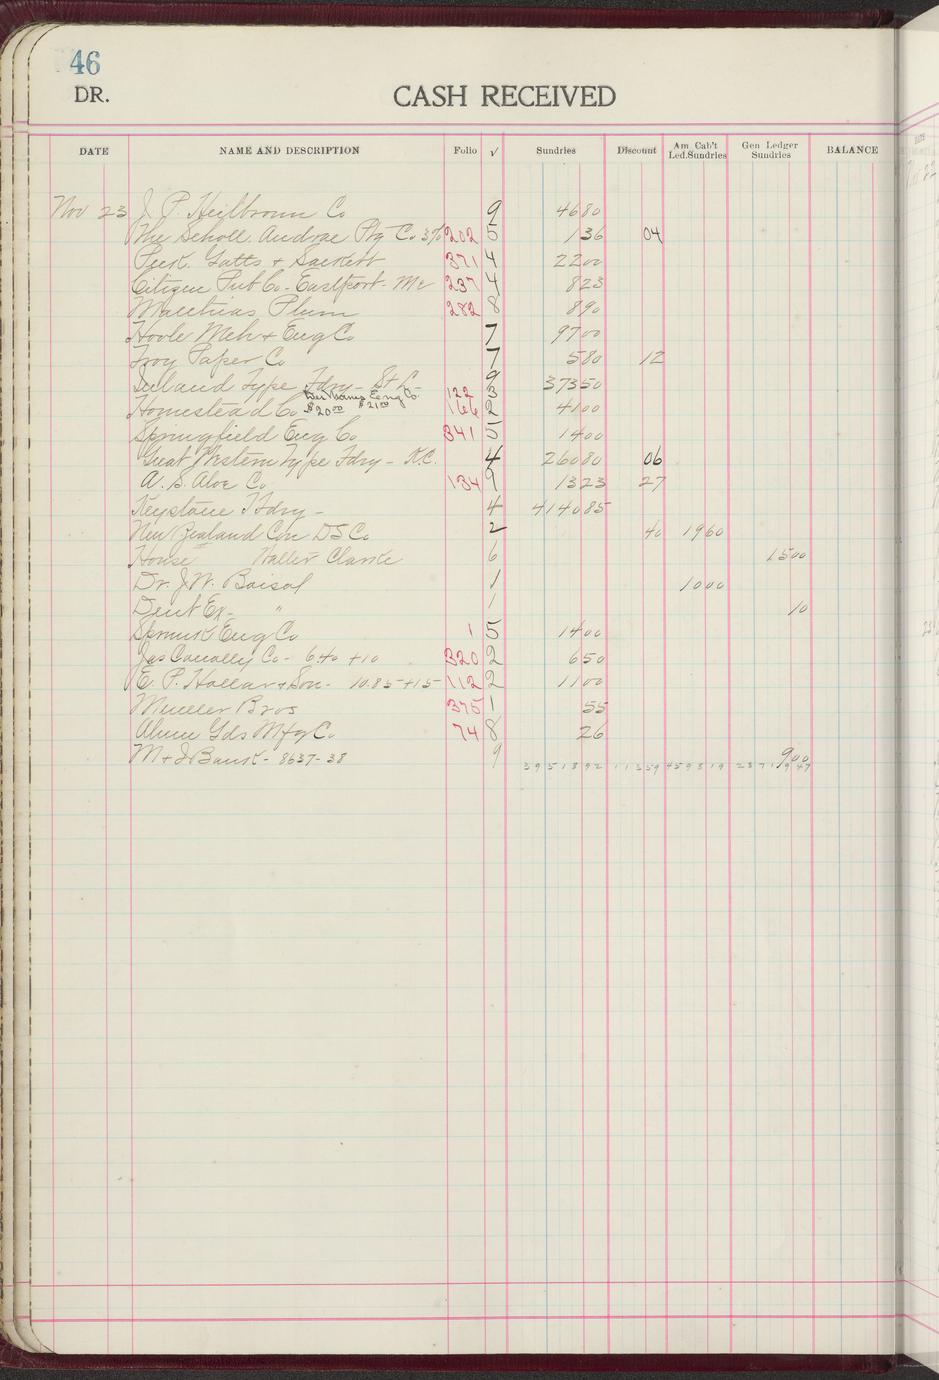 46
DR. CASH RECEIVED
DATE NAME AND DESCRIPTION Folio √ Sundries Discount Am Cab't Led.Sundries Gen Ledger Sundries BALANCE
Nov 23 J. P. Heilbronn Co 9 4680
The Scholl Andrae Ptg Co 3% 202 5 136 04
Peck. Gatts + Sackett 371 4 2200
Citizen Pub Co - Eastport - Me 237 4 823
Matthias Plum 282 8 890
Hoole Mch + Eng Co 7 9700
Troy Paper Co 7 580 12
Inland Type Fdry - St L - 9 37350
Eng Co. 122 3
Homestead Co $20.00 $21.00 166 2 4100
Springfield Eng Co 341 5 1400
Great Western Type Fdry - K.C. 4 26080 06
A. S. Aloe Co 134 9 1323 27
Keystone T Fdry - 4 414085
New Zealand Con DS Co 2 40 1960
House Walter Clarke 6 1500
Dr. J. W. 1 1000
Dent Ex - " 1 10
Eng Co 1 5 1400
Jas Conolly Co - 6.40 + 10 320 2 650
E. P. Hollar + Son - 10.85 + 15 112 2 1100
Mueller Bros 375 1 55
Alum Gds Mfg Co 74 8 26
M + J Bank - 8637-38 9 900
3951892 11359 459819 23719 47